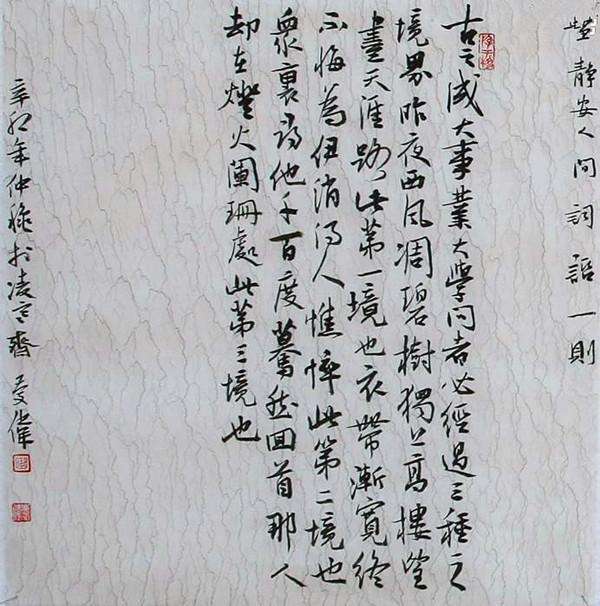 靜安人间詞語一則
古之成大事業大學问者必經過三種之
境界昨夜西风凋碧樹獨上高樓望
盡天涯路此第一境也衣帶漸寬終
不悔為伊消得人憔悴此第二境也
衆裏尋他千百度驀然回首那人
却在燈火闌珊處此第三境也
辛卯年仲秋於凌雲齋